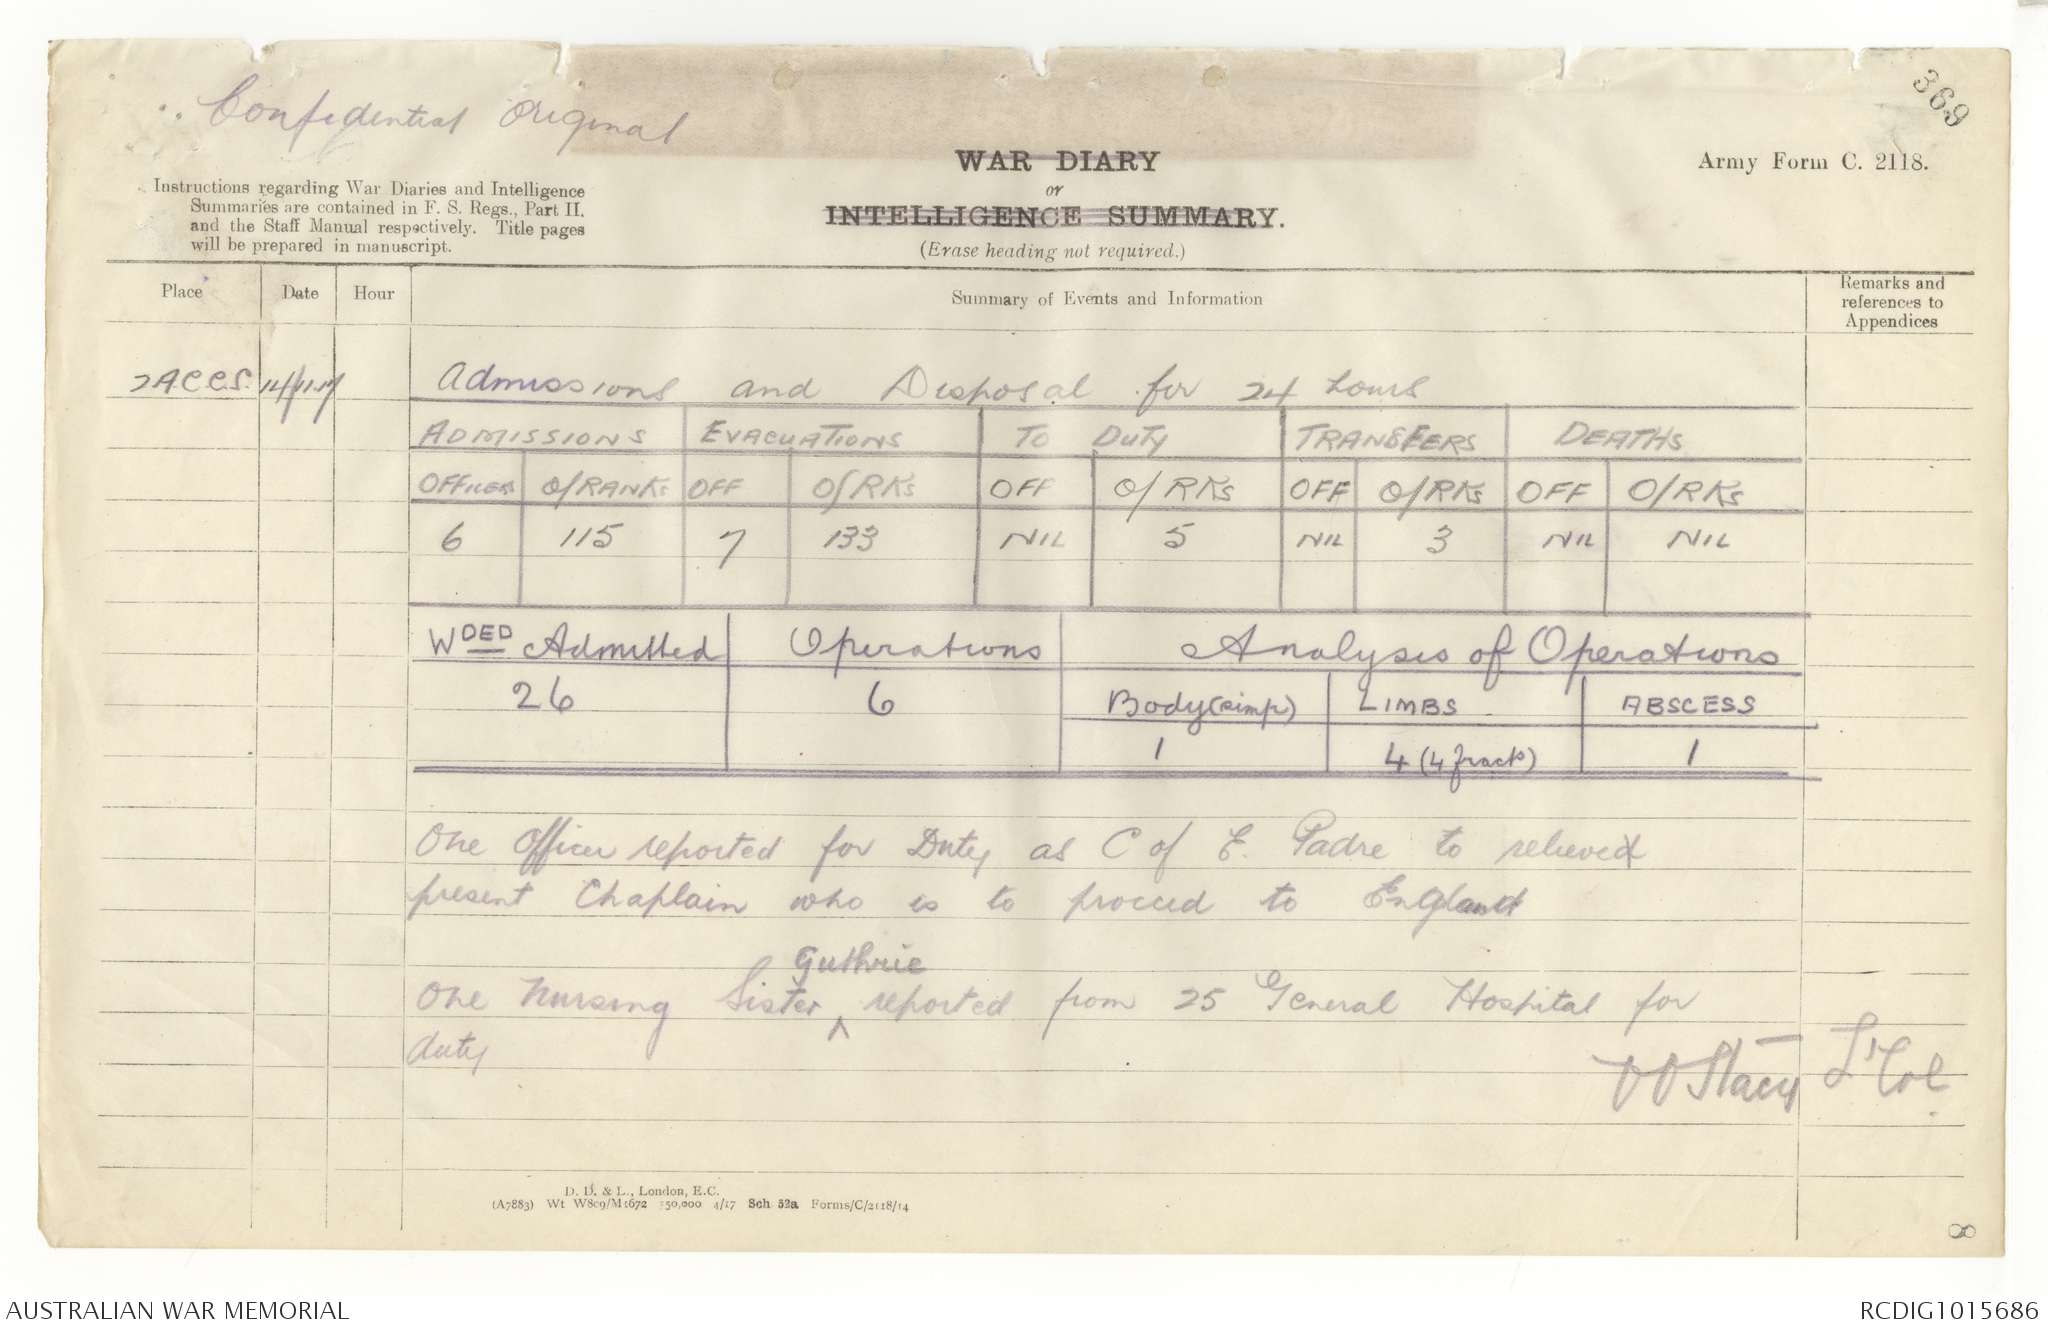 Confidential Original
369
WAR DIARY
or
INTELLIGENCE SUMMARY.
(Erase heading not required.)
Army Form C. 2118.
Instructions regarding War Diaries and Intelligence
Summaries are contained in F. S. Regs., Part II.
and the Staff Manual respectively. Title pages
will be prepared in manuscript.
Place Date Hour Summary of Events and Information Remarks and references to Appendices
2ACCS. Admissions and Disposal for 24 hours
ADMISSIONS EVACUATIONS TO DUTY TRANSFERS DEATHS
OFFICERS O/RANKS OFF O/RKS OFF O/RKS OFF O/RKS OFF O/RKS
6 115 7 133 NIL 5 NIL 3 NIL NIL
WDED Admitted Operations Analysis of Operations
26 6 Body (simp) LIMBS ABSCESS
1 4 (4 fracts) 1
One Officer reported for Duty as C of E. Padre to relieve
present Chaplain who is to proceed to England
Guthrie
One Nursing Sister ^ reported from 25 General Hospital for
duty
Stacy Lt Col
D. D. & L., London, E.C.
(A7883) Wt W809/M1672 350,000 4/17 Sch 52a Forms/C/2118/14
8
AUSTRALIAN WAR MEMORIAL
RCDIG1015686